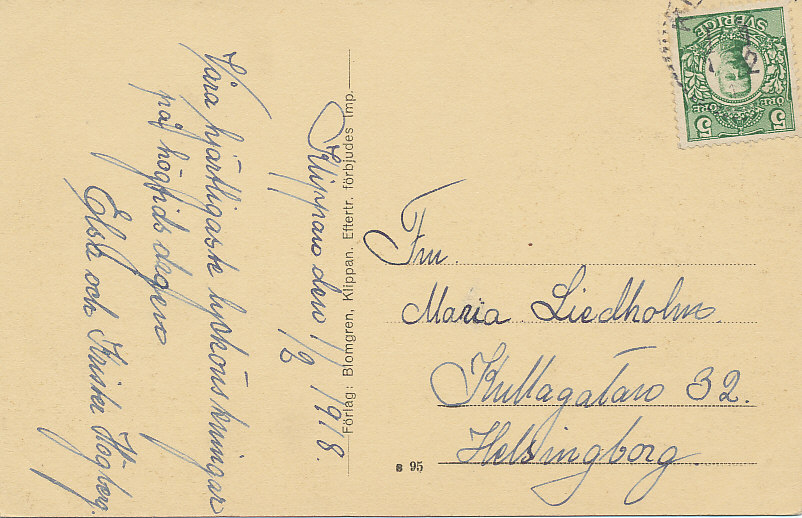 Klippan den 1/2 1918.
Våra hjärtligaste lyckönskningar
på högtidsdagen
Elsa och Krister Högberg.
Förlag: Blomgren, Klippan. Eftertr. förbjudes Imp.
SVERIGE
5 ÖRE ÖRE 5
Frn.
Maria Liedholm.
Kullagatan 32.
Helsingborg.
s 95